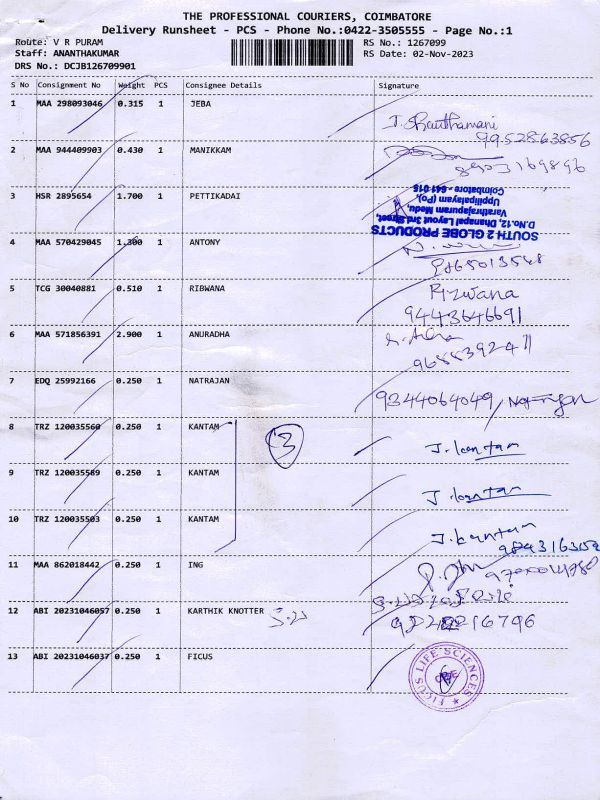 THE PROFESSIONAL COURIERS, COIMBATORE
Delivery Runsheet - PCS - Phone No.:0422-3505555 - Page No.:1
Route: V R PURAM RS No.: 1267099
Staff: ANANTHAKUMAR RS Date: 02-Nov-2023
DRS No.: DCJB126709901
S No Consignment No Weight PCS Consignee Details Signature
1 MAA 298093046 0.315 1 JEBA
9952863856
2 MAA 944409903 0.430 1 MANIKKAM
3 HSR 2895654 1.700 1 PETTIKADAI
SOUTH 2 GLOBE PRODUCTS
D.No.12, Dhanapal Layout 3rd Street,
Varathrajapuram Medu,
Uppilipalayam (Po),
Coimbatore - 641 015
4 MAA 570429045 1.300 1 ANTONY
5 TCG 30040881 0.510 1 RIBWANA
Rizwana
9443646691
6 MAA 571856391 2.900 1 ANURADHA
9688392471
7 EDQ 25992166 0.250 1 NATRAJAN
9344064049
8 TRZ 120035560 0.250 1 KANTAM
3
J. kantam
9 TRZ 120035589 0.250 1 KANTAM
J. kantam
10 TRZ 120035503 0.250 1 KANTAM
J. kantam
11 MAA 862018442 0.250 1 ING
12 ABI 20231046057 0.250 1 KARTHIK KNOTTER
13 ABI 20231046037 0.250 1 FICUS
FICUS LIFE SCIENCES
CBE